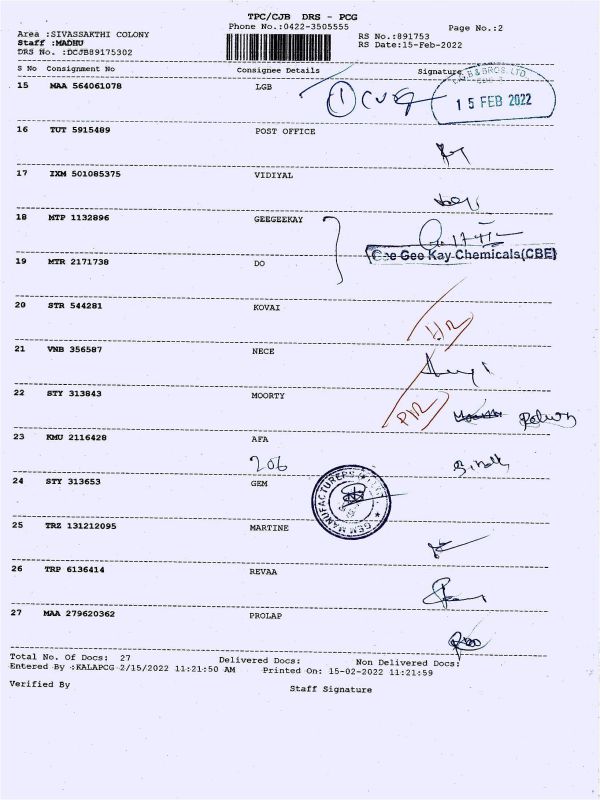 TPC/CJB DRS - PCG
Phone No.:0422-3505555 Page No.:2
Area :SIVASSAKTHI COLONY RS No.:891753
Staff :MADHU RS Date:15-Feb-2022
DRS No. :DCJB89175302
S No Consignment No Consignee Details Signature
15 MAA 564061078 LGB 1 15 FEB 2022
16 TUT 5915489 POST OFFICE
17 IXM 501085375 VIDIYAL
18 MTP 1132896 GEEGEEKAY
Gee Gee Kay Chemicals(CBE)
19 MTR 2171738 DO
20 STR 544281 KOVAI
21 VNB 356587 NECE
22 STY 313843 MOORTY
23 KMU 2116428 AFA
206
24 STY 313653 GEM
25 TRZ 131212095 MARTINE
26 TRP 6136414 REVAA
27 MAA 279620362 PROLAP
Total No. Of Docs: 27 Delivered Docs: Non Delivered Docs:
Entered By :KALAPCG 2/15/2022 11:21:50 AM Printed On: 15-02-2022 11:21:59
Verified By Staff Signature